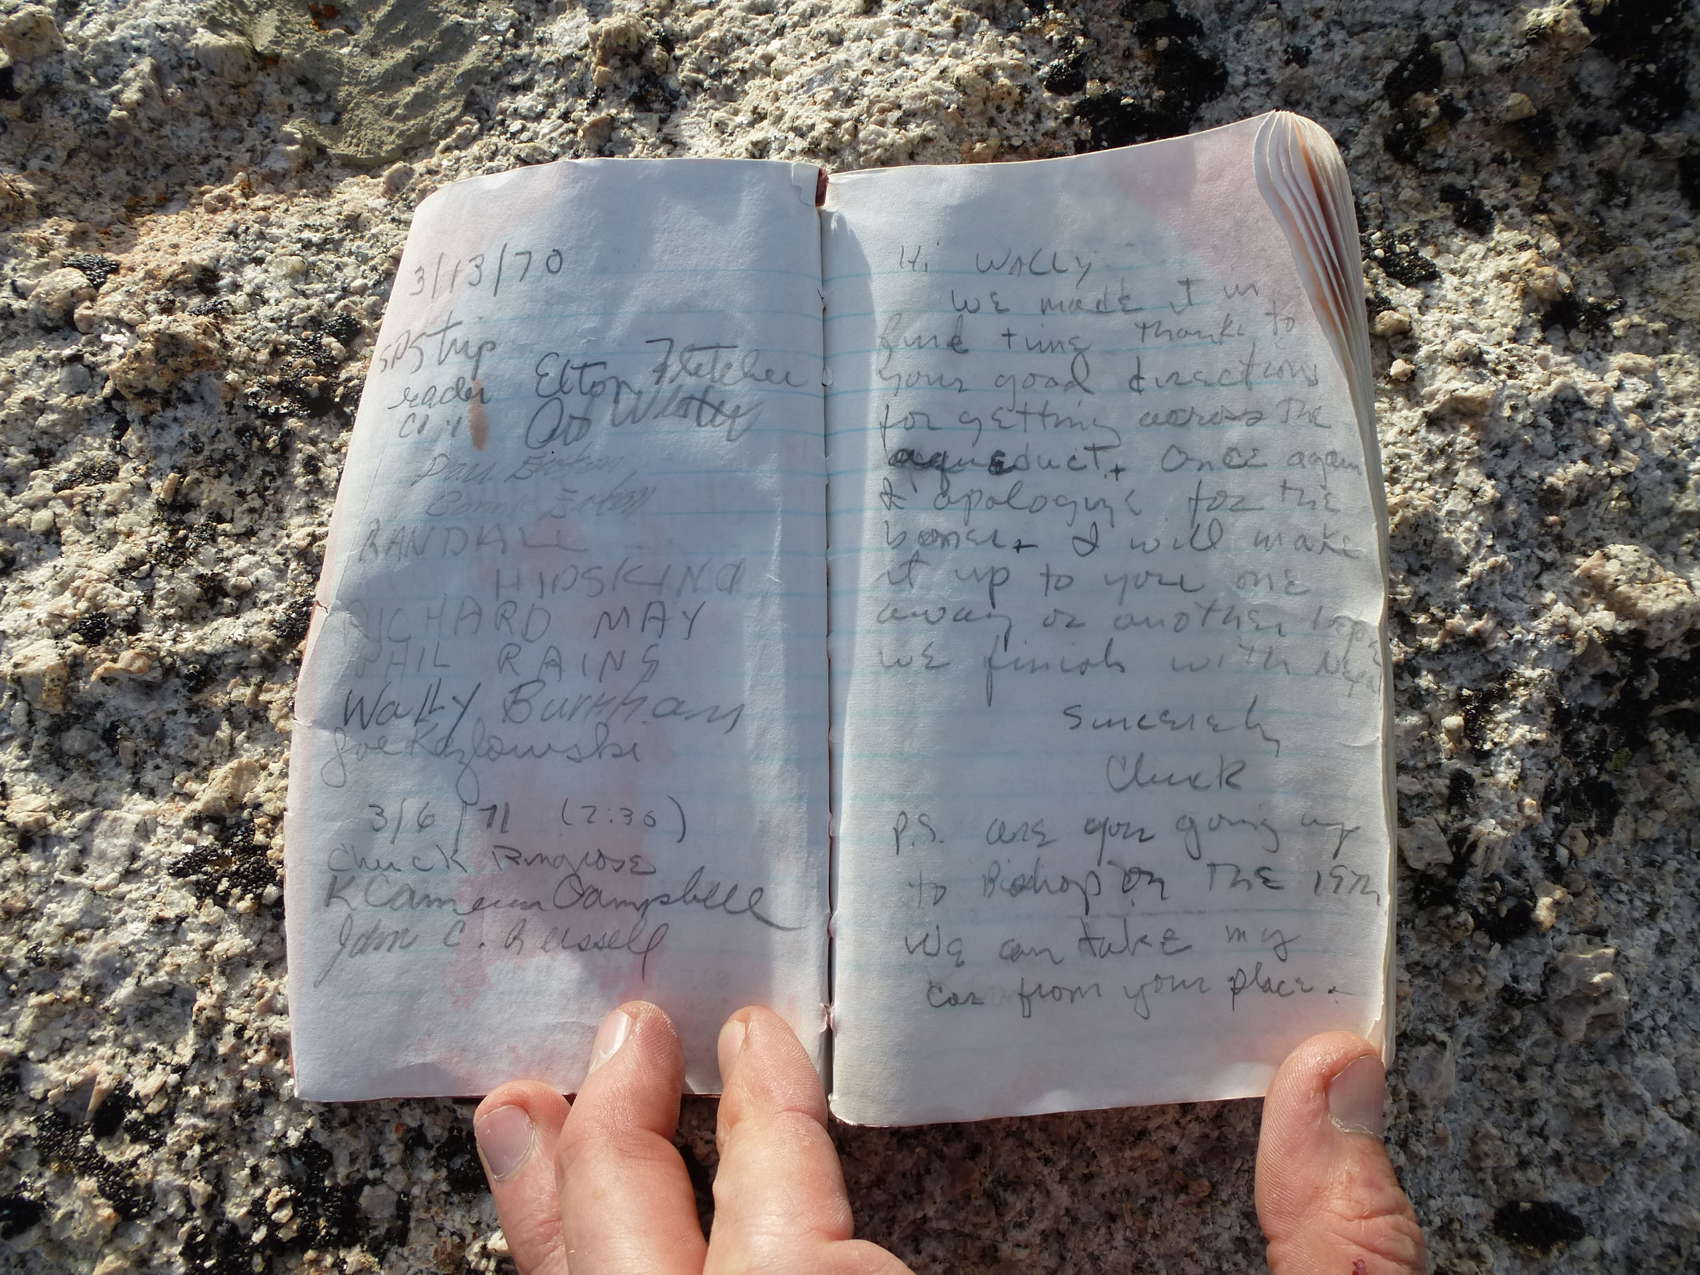 3/13/70
SPS trip
Elton Fletcher
RANDALL
HIPSKIND
RICHARD MAY
PHIL RAINS
Wally Burnham
Joe Kozlowski
3/6/71 (2:30)
Chuck Ringrose
K Cameron Campbell
John C. Russell
Hi WALLY
WE made it in
fine time thanks to
your good directions
for getting across the
aqueduct. Once again
I apologize for the
boner. I will make
it up to you one
away or another
WE finish with
Sincerely
Chuck
P.S. are you going up
to Bishop on THE 19th
WE can take my
car from your place.